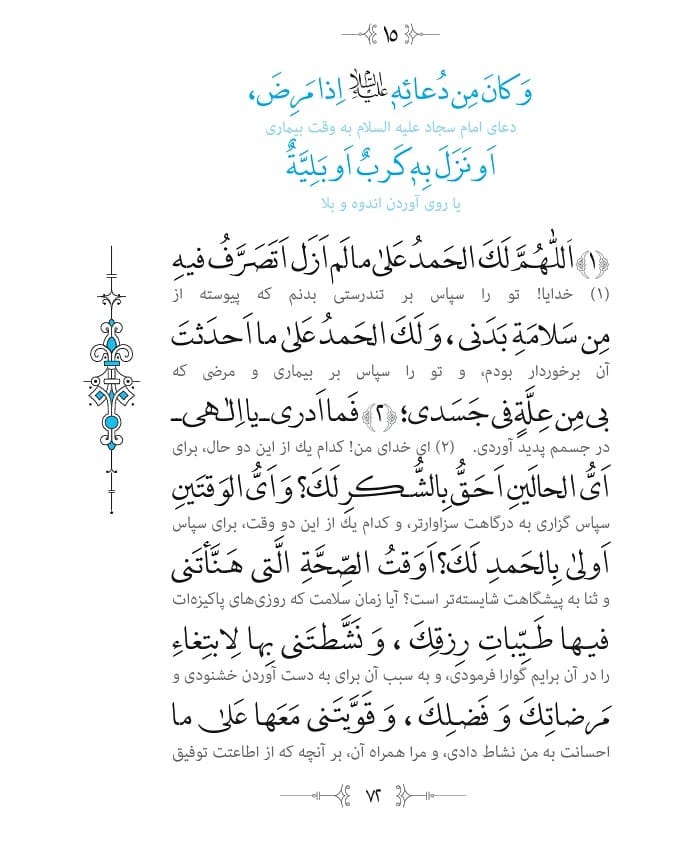 ۱۵
وَ كانَ مِن دُعائِهِ عَلَيْهِ السَّلامُ اِذا مَرِضَ،
دعای امام سجاد علیه السلام به وقت بیماری
اَو نَزَلَ بِهِ كَربٌ اَو بَلِيَّةٌ
یا روی آوردن اندوه و بلا
﴿۱﴾ اَللّٰهُمَّ لَكَ الحَمدُ عَلىٰ ما لَم اَزَل اَتَصَرَّفُ فيهِ
(۱) خدایا! تو را سپاس بر تندرستی بدنم که پیوسته از
مِن سَلامَةِ بَدَنى ، وَ لَكَ الحَمدُ عَلىٰ ما اَحدَثتَ
آن برخوردار بودم، و تو را سپاس بر بیماری و مرضی که
بى مِن عِلَّةٍ فى جَسَدى؛ ﴿۲﴾ فَما اَدرى ـ يا اِلٰهى ـ
در جسمم پدید آوردی. (۲) ای خدای من! کدام یك از این دو حال، برای
اَىُّ الحالَينِ اَحَقُّ بِالشُّكرِ لَكَ؟ وَ اَىُّ الوَقتَينِ
سپاس گزاری به درگاهت سزاوارتر، و کدام یك از این دو وقت، برای سپاس
اَولىٰ بِالحَمدِ لَكَ؟ اَوَقتُ الصِّحَّةِ الَّتى هَنَّأتَنى
و ثنا به پیشگاهت شایسته‌تر است؟ آیا زمان سلامت که روزی‌های پاکیزه‌ات
فيها طَيِّباتِ رِزقِكَ ، وَ نَشَّطتَنى بِها لِابتِغاءِ
را در آن برایم گوارا فرمودی، و به سبب آن برای به دست آوردن خشنودی و
مَرضاتِكَ وَ فَضلِكَ ، وَ قَوَّيتَنى مَعَها عَلىٰ ما
احسانت به من نشاط دادی، و مرا همراه آن، بر آنچه که از اطاعتت توفیق
۷۲